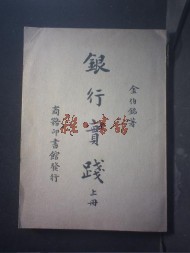 金伯銘著
銀行實踐
上冊
商務印書館發行